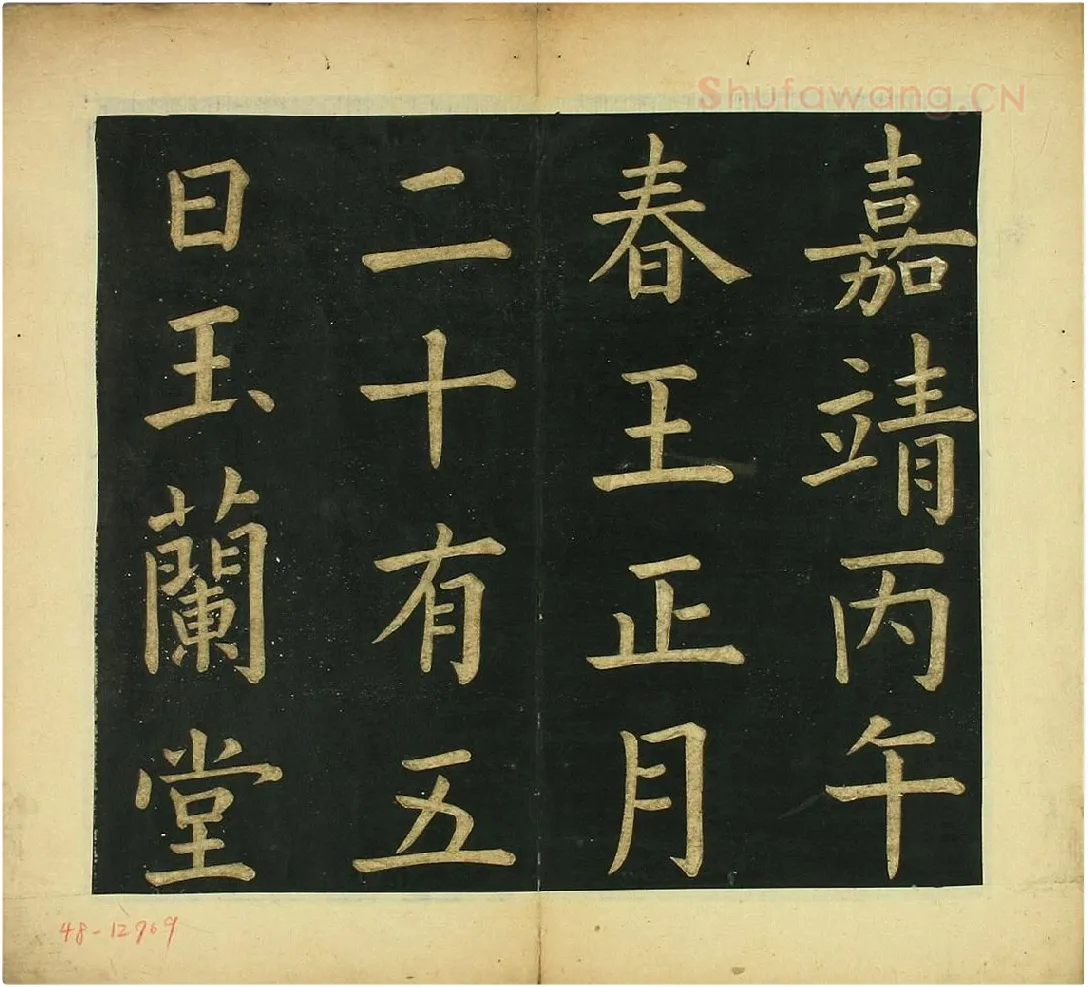 Shufawang.CN
嘉靖丙午
春王正月
二十有五
日玉蘭堂
48-12769